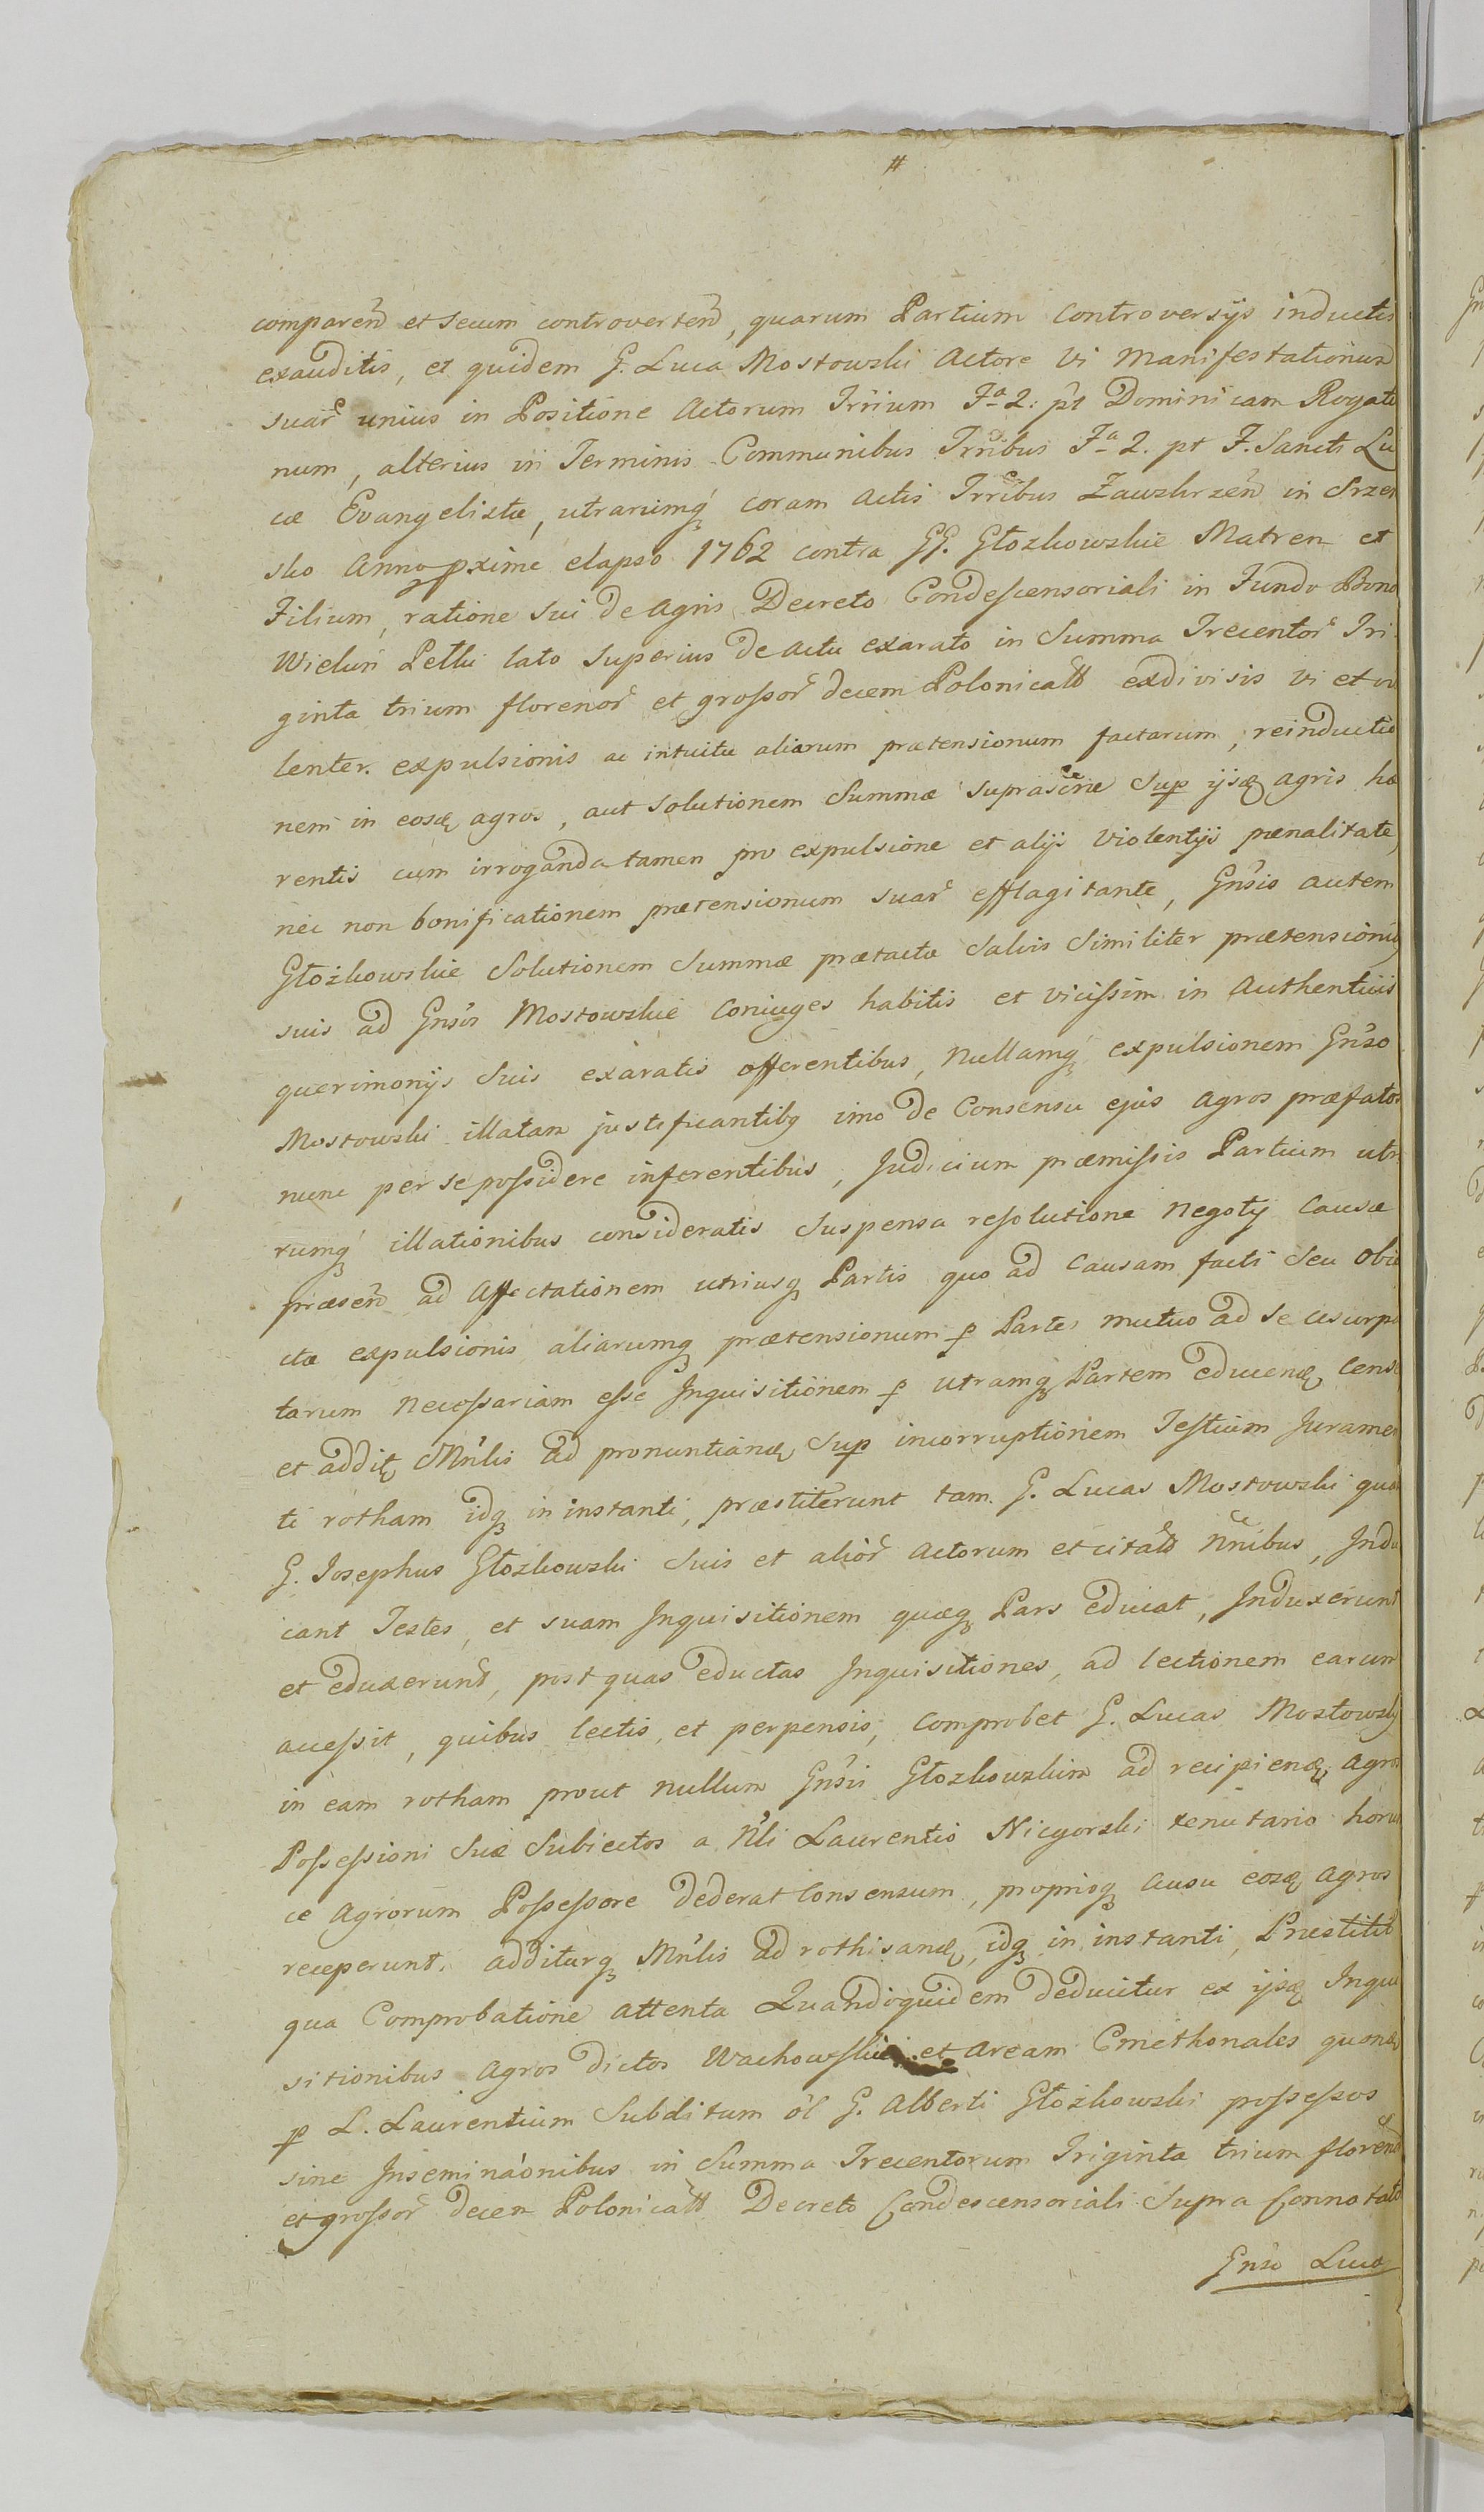 #
comparen̄d et secum controverten̄d, quarum Partium Controversijs inductis
exauditis, et quidem G. Luca Mostowski Actore Vi Manifestationum
suar̄ unius in Positione Actorum Trr̄ium F̲ᵃ 2. pt Dominicam Rogatio
num, alterius in Terminis Communibus Trr̄ibus F̲ᵃ 2. pt F. Sancti Lu
cæ Evangelistæ, utrarumq́ꝫ coram Actis Trr̄ibus Zawskrzen̄ in Srzen
sko Anno pxime elapso 1762 contra GG. Głozkowskie Matrem et
Filium, ratione sui de Agris Decreto Condescensoriali in Fundo Bono
Wieluń Pełki lato superius de Actu exarato in Summa Trecentor̄ Tri
ginta trium florenor̄ et grossor̄ decem Polonicał̄ exdivisis vi et vio
lenter. expulsionis ac intuitu aliarum prætensionum factarum, reinductio
nem in eosdꝫ agros, aut solutionem Summæ suprascr̄æ sup ijsdꝫ agris hæ
rentis cum irroganda tamen pro expulsione et alijs violentijs pænalitate,
nec non bonificationem prætensionum suar̄ efflagitante, Gn̄sis autem
Głożkowskie Solutionem Summæ prætactæ Salvis Similiter prætensionibꝫ
suis ad Gn̄sos Mostowskie Coniuges habitis et vicissim in Authenticis
querimonijs Suis exaratis offerentibus, Nullamq́ꝫ expulsionem Gn̄so
Mostowski illatam justificantibꝫ imo de Consensu ejus agros præfatos
nunc per se possidere inferentibus, Judicium præmissis Partium utra
rumq́ꝫ illationibus consideratis Suspensa resolutione Negoty Causæ
præsen̄ ad Affectationem utriusqꝫ Partis quo ad Causam facti Seu Obie
ctæ expulsionis aliarumqꝫ prætensionum ꝑ Partes mutuo ad se usurpa
tarum necessariam esse Inquisitionem ꝑ utramqꝫ Partem educendꝫ Censet
et additꝫ Mn̄lis ad pronuntiandꝫ Sup incorruptionem Testium Juramen
ti rotham idqꝫ in instanti, præstiterunt tam. G. Lucas Mostowski quam
G. Josephus Głozkowski Suis et alior̄ Actorum et citat̄ Nn̄ibus, Indu
cant Testes, et suam Inquisitionem quæqꝫ Pars educat, Induxerunt
et eduxerunt, post quas eductas Inquisitiones, ad lectionem earum
accessit, quibus lectis, et perpensis, Comprobet G. Lucas Mostowsky
in eam rotham prout nullum Gn̄sis Głozkowskim ad recipiendꝫ Agros
Possessioni Suæ Subiectos a N̄li Laurentio Nicgorski tenutario horum
ce Agrorum Possessore dederat Consensum, proprioqꝫ Ausu eosdꝫ agros
receperunt. additurqꝫ Mn̄lis ad rothisandꝫ, idqꝫ in instanti, Præstitit
qua Comprobatione attenta Quandoquidem deducitur ex ijsdꝫ Inqui
sitionibus Agros dictos Wachowskie et aream Cmethonales quondꝫ
ꝑ L. Laurentium Subditum ol̄ G. Alberti Głożkowski possessos
sine Insemināonibus in Summa Trecentorum Triginta trium floren̄
et grossor̄ decem Polonicał̄ Decreto Condescensoriali Supra Connotato
Gn̄so Luca